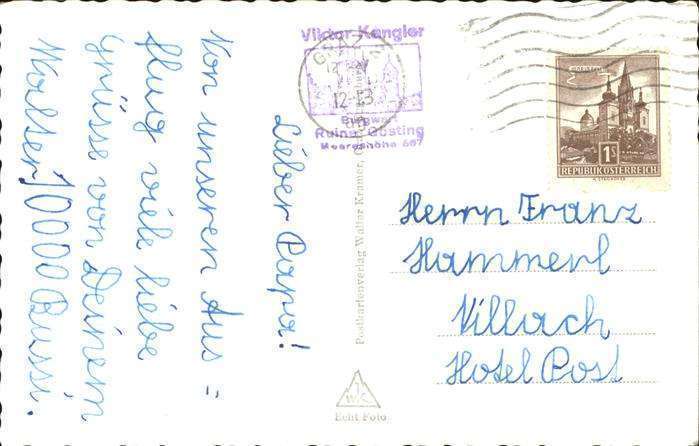 Viktor Kangler
GRAZ
12-13
Burgwart
Ruine Gösting
Meereshöhe 607
Lieber Papa!
Von unseren Aus=
flug viele liebe
Grüsse von Deinem
Walter 10000 Bussi.
Postkartenverlag Walter Kramer, Graz
Echt Foto
MARIAZELL
1S
REPUBLIK ÖSTERREICH
Herrn Franz
Hammerl
Villach
Hotel Post